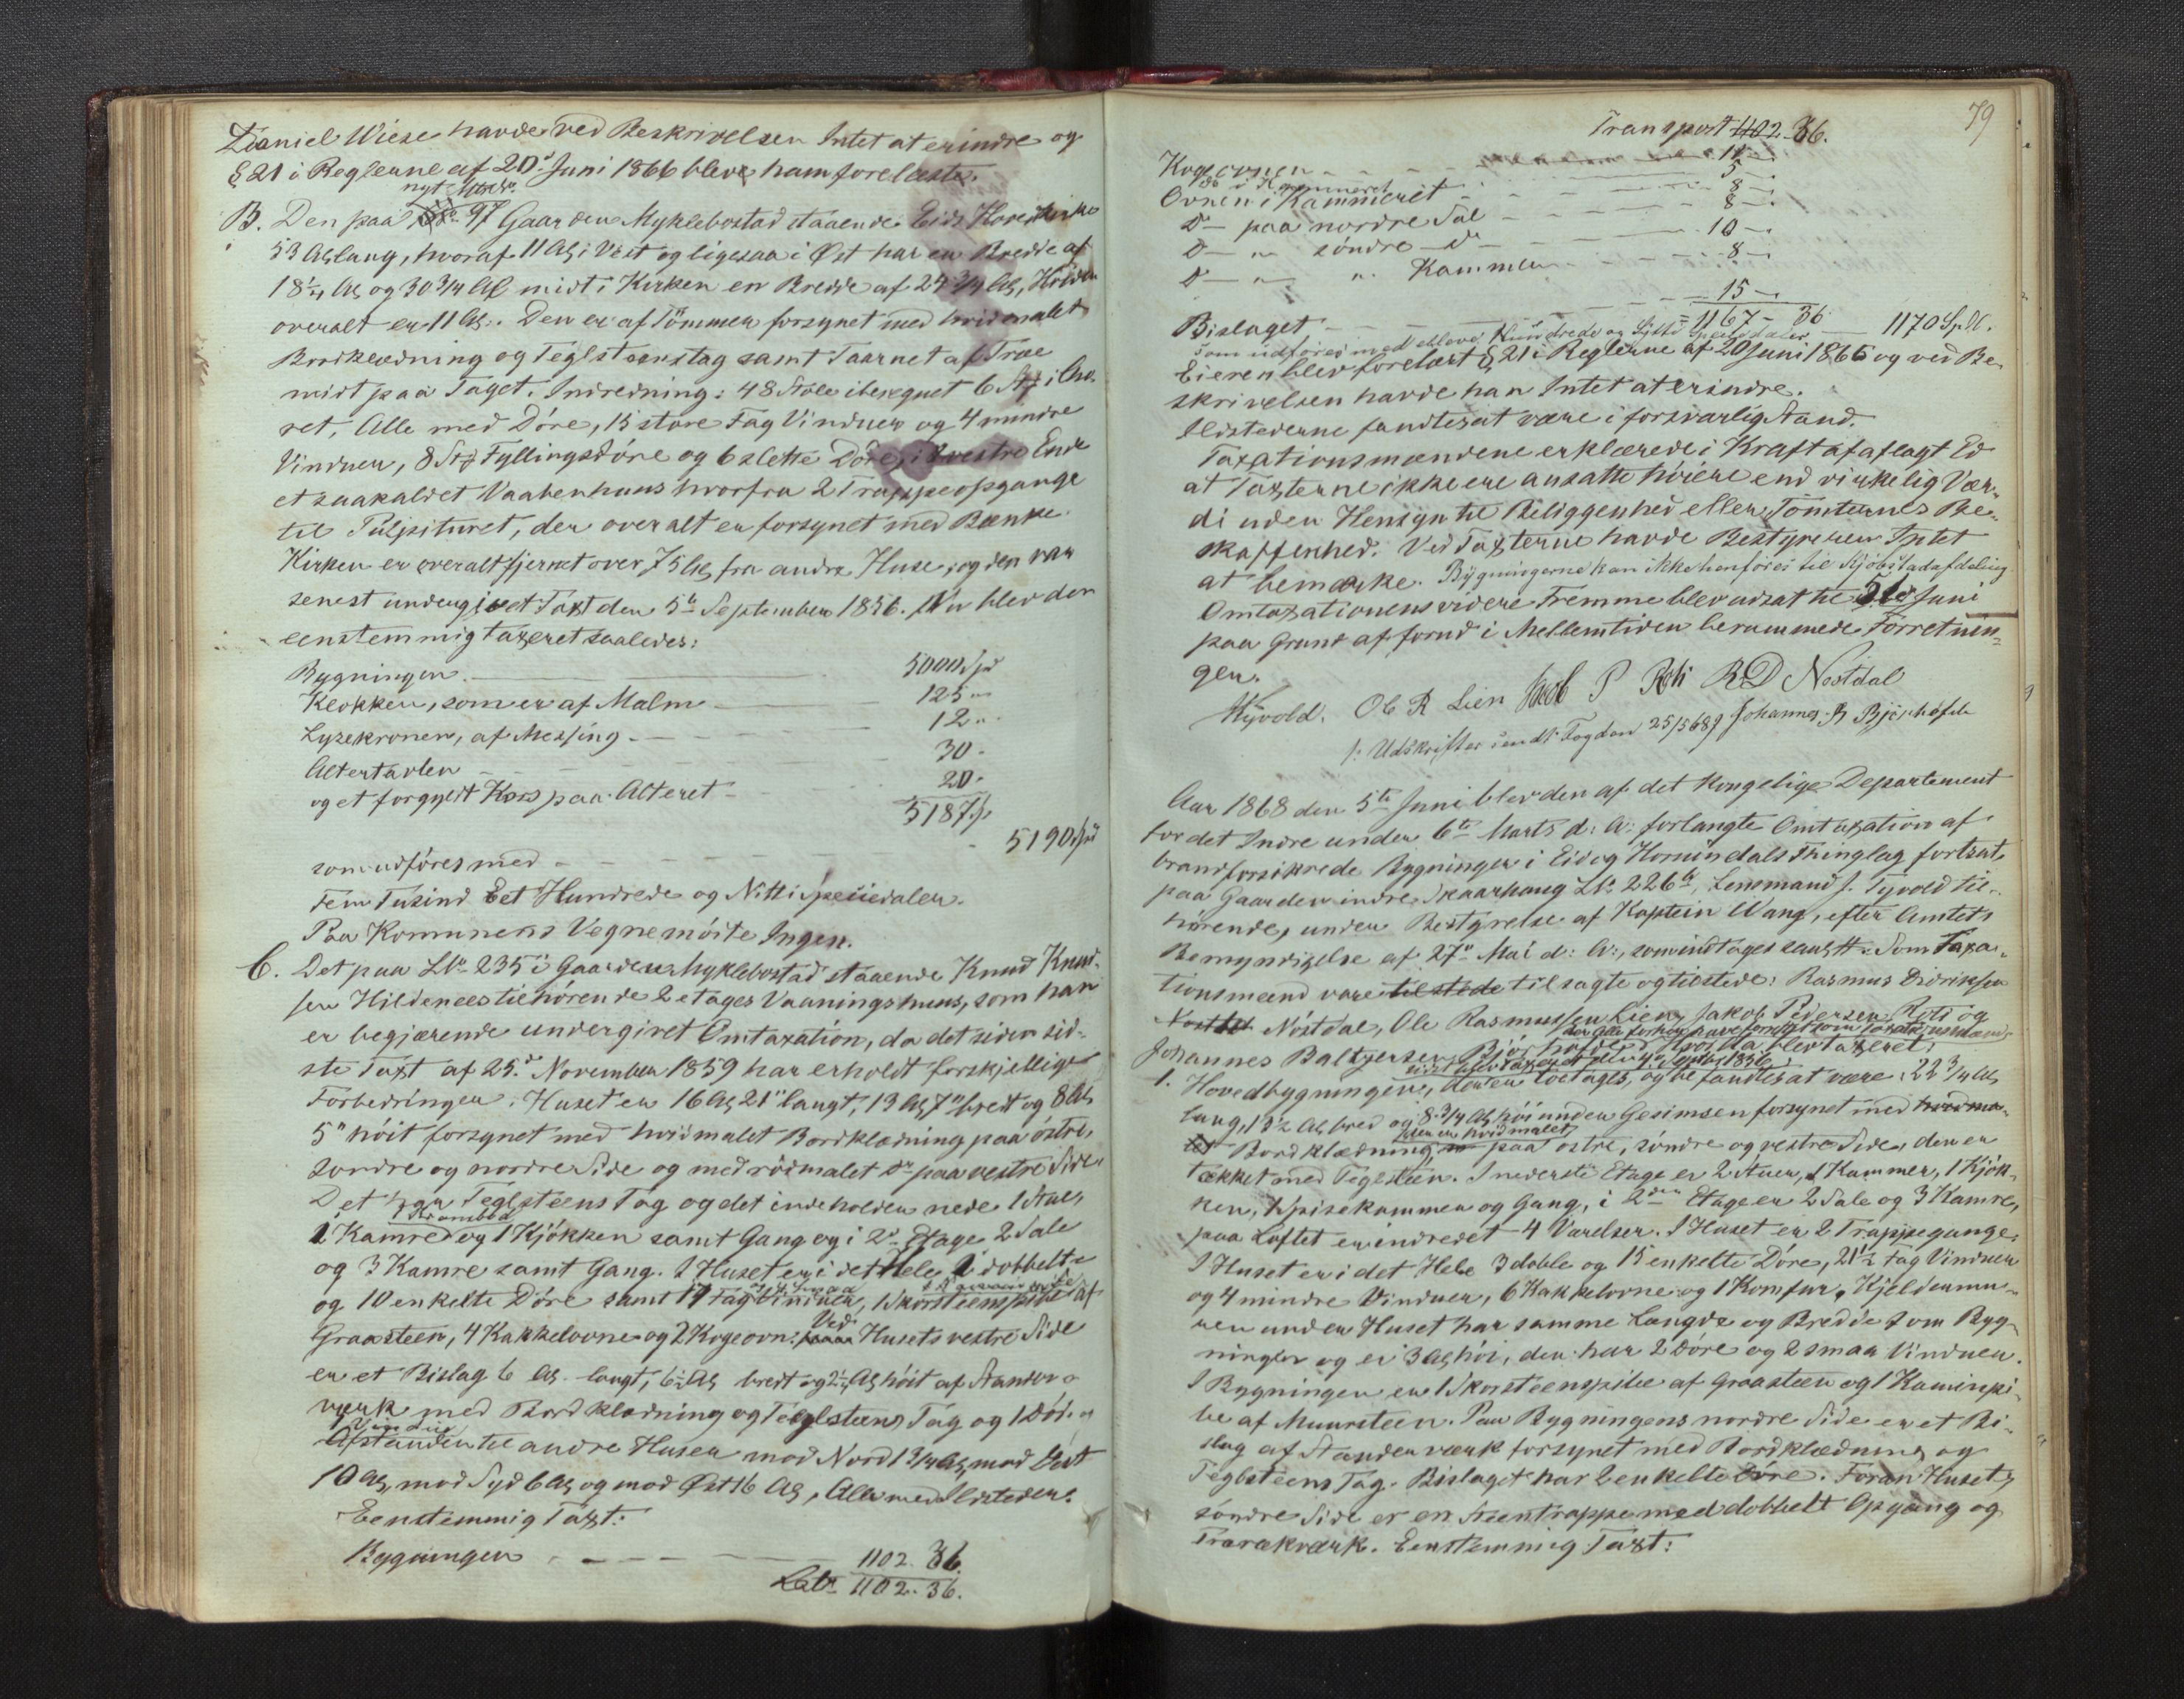 Daniel Wiese havde ved Beskrivelsen Intet at erindre og
§ 21 i Reglerne af 20d Juni 1866 bleve ham forelæste.
B. Den paa No 97 Gaarden Myklebostad staaende Eids Hovedkirke
53 Al lang, hvoraf 11 Al i Vest og ligesaa i Øst har en Bredde af
18 1/4 Al og 30 3/4 Al midt i Kirken en Bredde af 24 3/4 Al, Høiden
overalt er 11 Al. Den er af Tømmer forsynet med hvidmalet
Bordklædning og Teglsteenstag samt Taarnet af Træ
midt paa Taget. Indredning: 48 Stole iberegnet 6 St i Cho-
ret, Alle med Døre, 15 store Fag Vinduer og 4 mindre
Vinduer, 8 St Fyllingsdøre og 6 slette Døre, i vestre Ende
et saakaldet Vaabenhuus hvorfra 2 Trappeopgange
til Pulpituret, der overalt er forsynet med Bænke.
Kirken er overalt fjernet over 75 Al fra andre Huse, og den var
senest undergivet Taxt den 5te September 1856. Nu blev den
eenstemmig taxeret saaledes:
Bygningen 5000 Spd
Klokken, som er af Malm 125 "
Lysekronen, af Messing 12 "
Altertavlen 30 -
og et forgyldt Kors paa Alteret 20 -
5187 Sp
som udføres med 5190 Spd
Fem Tusind Eet Hundrede og Nitti Speciedaler.
Paa Kommunens Vegne mødte Ingen.
C. Det paa LNo 235 i Gaarden Myklebostad staaende Knud Knud-
sen Hildenees tilhørende 2 etages Vaaningshuus, som han
er begjærende undergivet Omtaxation, da det siden sid-
ste Taxt af 25d November 1859 har erholdt forskjellige
Forbedringer. Huset er 16 Al 21" langt, 13 Al 7" bredt og 8 Al
5" høit forsynet med hvidmalet Bordklædning paa østre,
søndre og nordre Side og med rødmalet do paa vestre Side
Det har Teglsteens Tag og det indeholder nede 1 Stue,
1 Krambod
2 Kamre og 1 Kjøkken samt Gang og i 2d Etage 2 Sale
og 3 Kamre samt Gang. I Huset er i det Hele 2 dobbelte
og 10 enkelte Døre samt 17 Fag Vinduer, 1 Skorsteenspibe af
Graasteen, 4 Kakkelovne og 2 Kogeovne. Ved Husets vestre Side
er et Bislag 6 Al langt, 6 1/2 Al bredt og 2 1/2 Al høit af Stander-
værk med Bordklædning og Teglsteens Tag og 1 Dør.
1 Vindue
Afstanden til andre Huse er mod Nord 13/4 Al, mod Vest
10 Al, mod Syd 6 Al og mod Øst 16 Al, Alle med Ildsteder.
Eenstemmig Taxt:
Bygningen 1102. 36.
Lats 1102. 36.
79
Transport 1102. 36.
Kogeovnen 11 -
do i Kammeret 5 -
Ovnen i Kammeret 8 -
Do paa nordre Sal 8 -
D " søndre do 10 -
D " " Kammer 8 -
Bislaget 15 -
1167 - 36
1170 Spd.
som udføres med elleve Hundrede og Sytti Speciedaler
Eieren blev forelæst § 21 i Reglerne af 20 Juni 1866 og ved Be-
skrivelsen havde han Intet at erindre.
Ildstederne fandtes at være i forsvarlig Stand.
Taxationsmændene erklærede i Kraft af aflagt Ed
at Taxterne ikke ere ansatte høiere end virkelig Vær-
di uden Hensyn til Beliggenhed eller Tomternes Be-
skaffenhed. Ved Taxterne havde Bestyreren Intet
at bemærke. Bygningerne kan ikke henføres til Kjøbstadafdeling
Omtaxationens videre Fremme blev udsat til 5te Juni
paa Grund af forud i Mellemtiden berammede Forretnin-
ger.
Tyvold. Ole R Lien Jacob P Roti R D Nostdal
/: Udskrifter sendt Fogden 25/5 68 :/ Johannes B Bjørhofde
Aar 1868 den 5te Juni blev den af det Kongelige Departement
for det Indre under 6te Marts d: A: forlangte Omtaxation af
brandforsikrede Bygninger i Eid og Hornindals Thinglag fortsat
paa Gaarden indre Skaarhaug LNo 226b, Lensmand J. Tyvold til-
hørende, under Bestyrelse af Kaptein Wang, efter Amtets
Bemyndigelse af 27de Mai d: A:, som indtages Som Taxa-
tionsmænd vare til stede tilsagte og tilstede: Rasmus Didriksen
Nøstdal, Ole Rasmussen Lien, Jakob Pedersen Roti og
Johannes Baltzersen Bjørhofde hvorda blev taxeret,
1. Hovedbygningen, den er toetages, og befandtes at være 22 3/4 Al
lang, 13 1/2 Al bred og 8 3/4 Al høi under Gesimsen forsynet med hvidma-
den er hvidmalet
let Bordklædning paa østre, søndre og vestre Side, den er
tækket med Teglsteen. I nederste Etage er 2 Stuer, 1 Kammer, 1 Kjøk-
ken, 1 Spisekammer og Gang, i 2den Etage er 2 Sale og 3 Kamre,
paa Loftet er indredet 4 Værelser. I Huset er 2 Trappegange.
I Huset er i det Hele 3 doble og 15 enkelte Døre, 21 1/2 Fag Vinduer
og 4 mindre Vinduer, 6 Kakkelovne og 1 Komfur. Kjeldermu-
ren under Huset har samme Længde og Bredde som Byg-
ningen og er 3 Al høi, den har 2 Døre og 2 smaa Vinduer.
I Bygningen er 1 Skorsteenspibe af Graasteen og 1 Kaminpi-
be af Muursteen. Paa Bygningens nordre Side er et Bi-
slag af Standerværk forsynet med Bordklædning og
Teglsteens Tag. Bislaget har 2 enkelte Døre. Foran Husets
søndre Side er en Steentrappe med dobbelt Opgang og
Trærækværk. Eenstemmig Taxt: